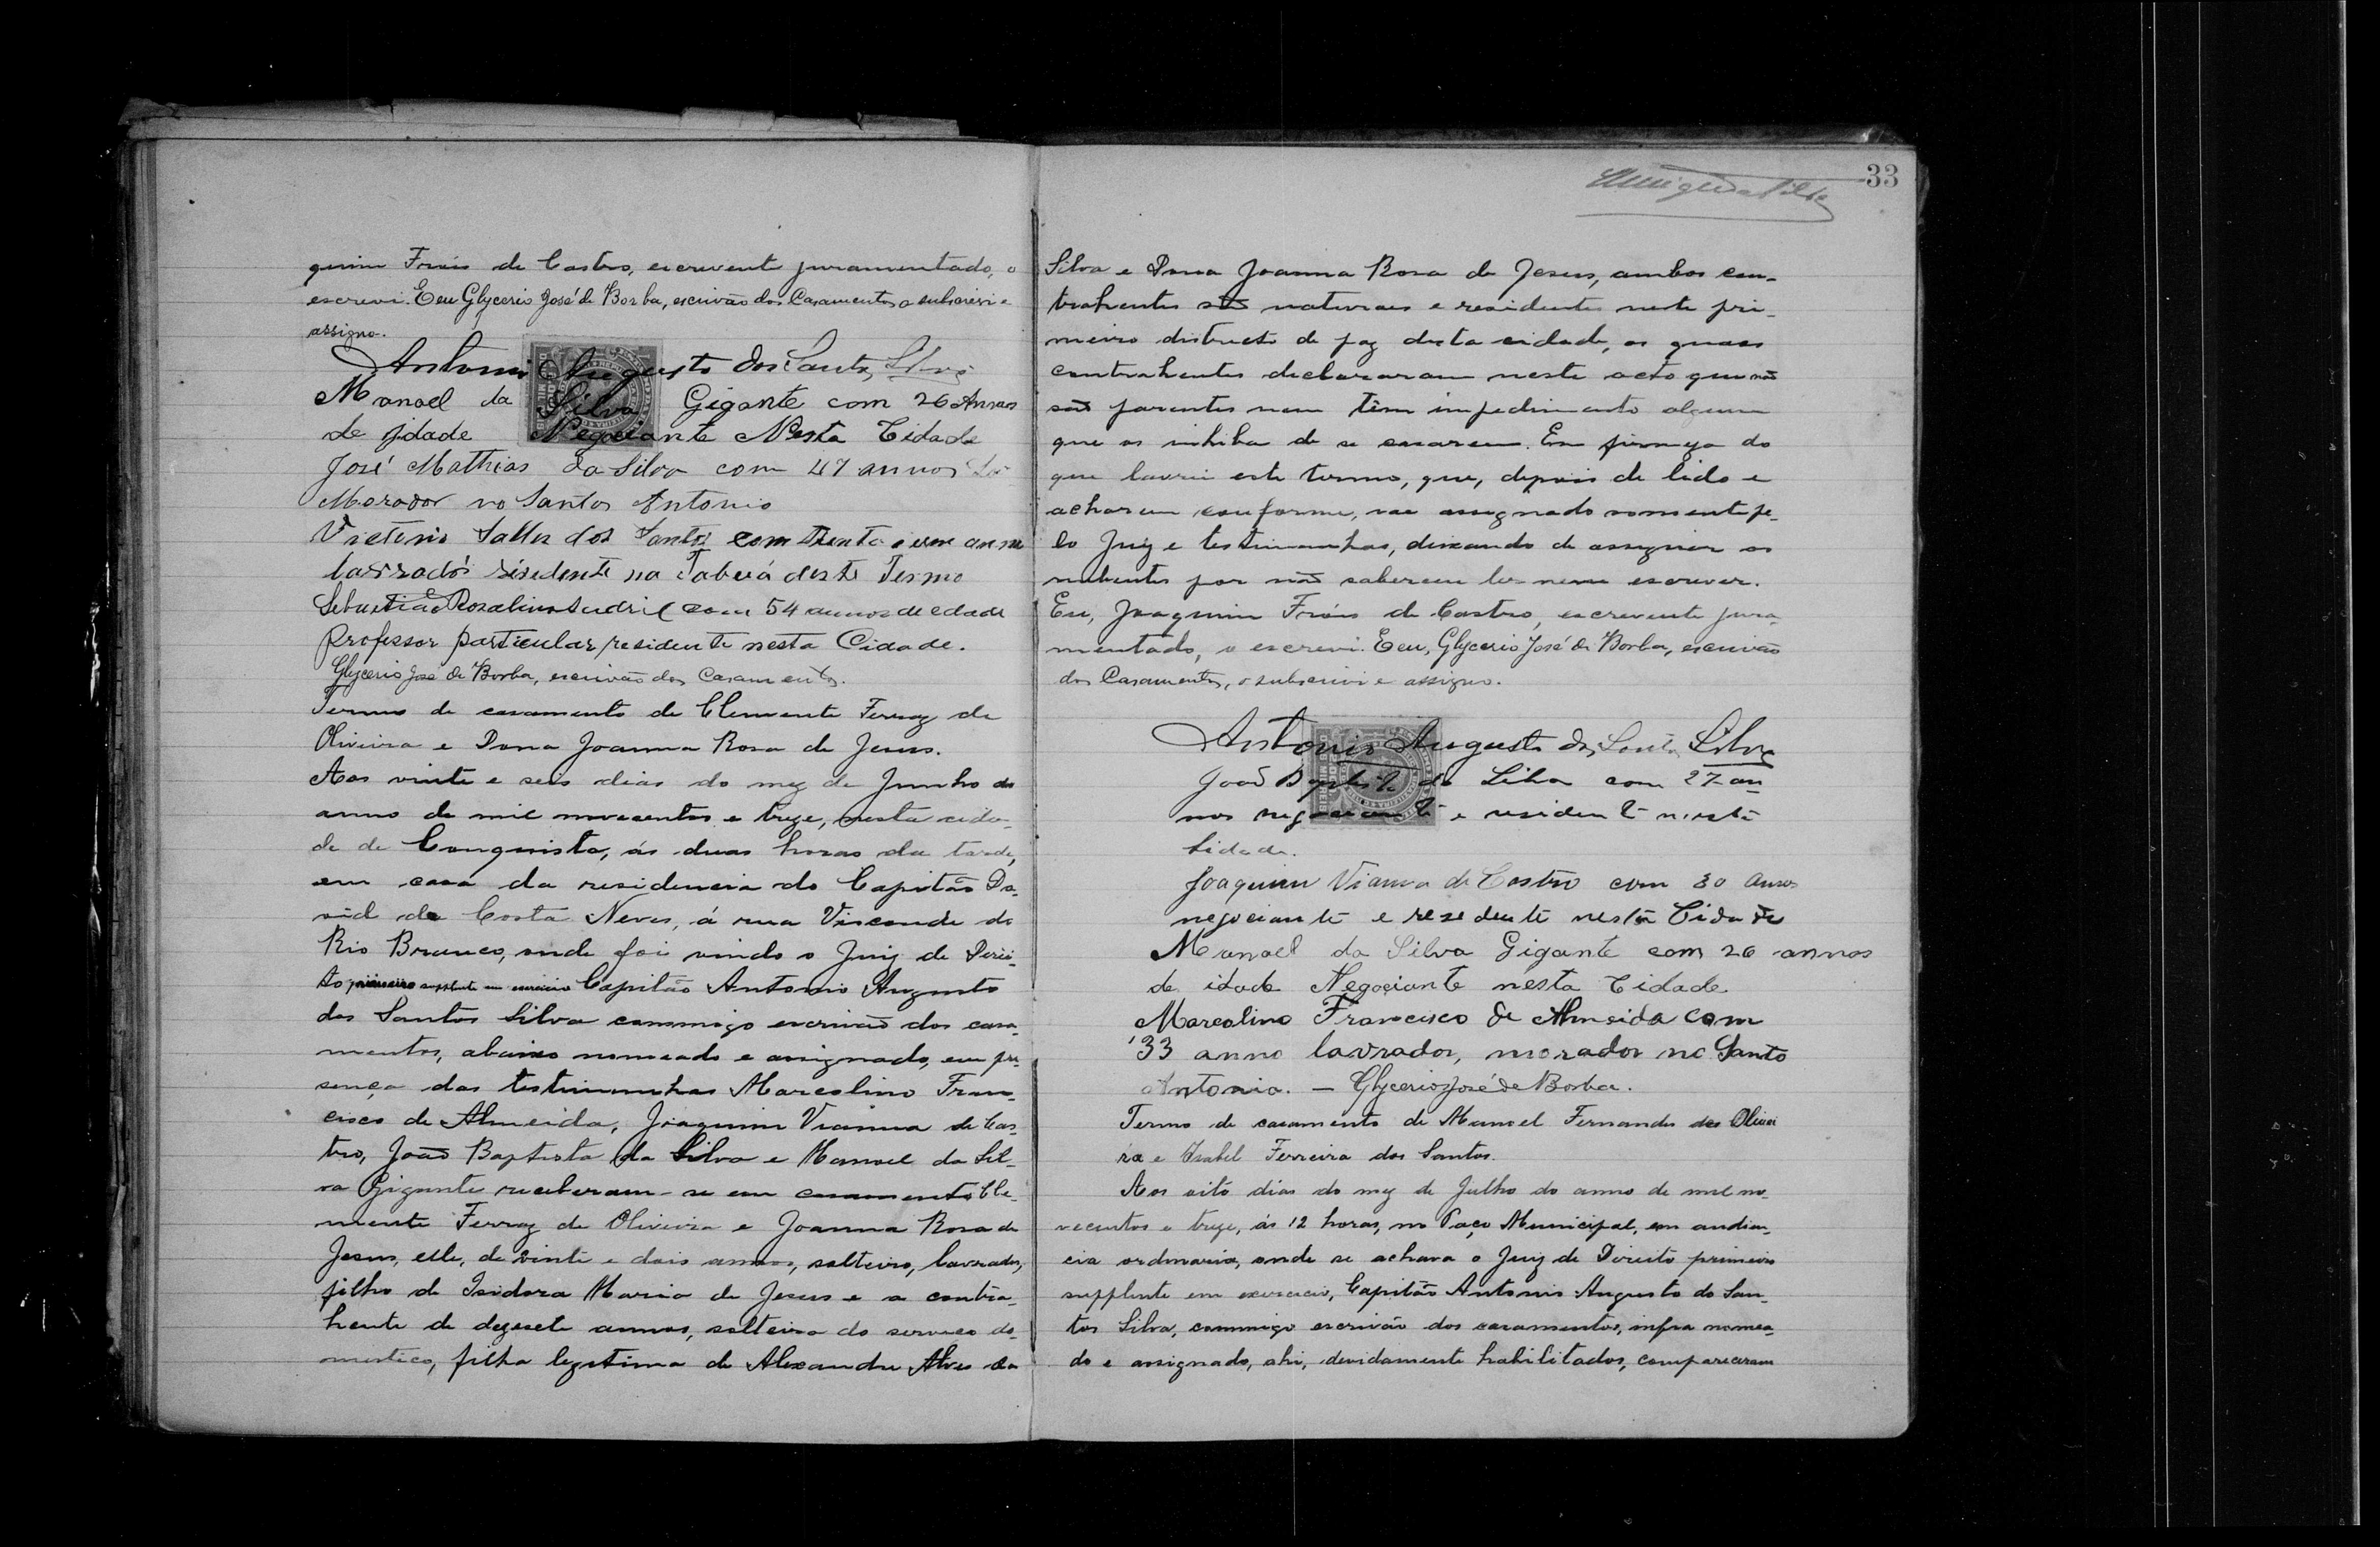 quim Fróis de Castro, escrevente juramentado, o
escrevi. E eu Glycerio José de Borba, escrivão dos Casamentos o subscrevi e
assigno.
Antonio Augusto dos Santos Silva
Manoel da Silva Gigante com 26 Annos
de idade Negociante Nesta Cidade
José Mathias da Silva com 47 annos
Morador no Santos Antonio
Victorio Salles dos Santos com trenta e um anno
lavrador residente na Tabuá deste Termo
Sebastião Rosalino com 54 annos de edade
Professor particular residente nesta Cidade.
Glycerio José de Borba, escrivão dos Casamentos.
Termo de casamento de Clemente Ferraz de
Oliveira e Dona Joanna Rosa de Jesus.
Aos vinte e seis dias do mez de Junho do
anno de mil novecentos e treze, nesta cida-
de de Conquista, ás duas horas da tarde,
em casa da residencia do Capitão Da-
vid da Costa Neves, á rua Visconde do
Rio Branco, onde foi vindo o Juiz de Direi-
to primeiro supplente em exercicio Capitão Antonio Augusto
dos Santos Silva commigo escrivão dos casa-
mentos, abaixo nomeado e assignado, em pre-
sença das testimunhas Marcolino Fran-
cisco de Almeida, Joaquim Vianna de Cas-
tro, João Baptista da Silva e Manoel da Sil-
va Gigante receberam-se em casamento Cle-
mente Ferraz de Oliveira e Joanna Rosa de
Jesus, elle, de vinte e dois annos, solteiro, lavrador,
filho de Isidora Maria de Jesus e a contra-
hente de dezesete annos, solteira do serviço do-
mestico, filha legitima de Alexandre Alves da
33
Silva e Dona Joanna Rosa de Jesus, ambos con-
trahentes são naturaes e residentes neste pri-
meiro districto de paz desta cidade, os quaes
contrahentes declararam neste acto que não
são parentes nem têm impedimento algum
que os inhiba de se casarem. Em firmeza do
que lavrei este termo, que, depois de lido e
acharem conforme, vae assignado somente pe-
lo Juiz e testimunhas, deixando de assignar os
nubentes por não saberem ler nem escrever.
Eu, Joaquim Fróis de Castro, escrevente jura-
mentado, o escrevi. E eu, Glycerio José de Borba, escrivão
dos Casamentos, o subscrevi e assigno.
Antonio Augusto dos Santos Silva
João Baptista da Silva com 27 an
nos negociante e residente nesta
Cidade.
Joaquim Vianna de Castro com 30 annos
negociante e resedente nesta Cidade
Manoel da Silva Gigante com 26 annos
de idade Negociante nesta Cidade
Marcolino Francisco de Almeida com
33 anno lavrador, morador no Santo
Antonio. — Glycerio José de Borba.
Termo de casamento de Manoel Fernandes de Olivei
ra e Isabel Ferreira dos Santos.
Aos oito dias do mez de Julho do anno de mil no-
vecentos e treze, ás 12 horas, no Paço Municipal, em audien-
cia ordinaria, onde se achava o Juiz de Direito primeiro
supplente em exercicio, Capitão Antonio Augusto do San-
tos Silva, commigo escrivão dos casamentos, infra nomea-
do e assignado, ahi, devidamente habilitados, compareceram